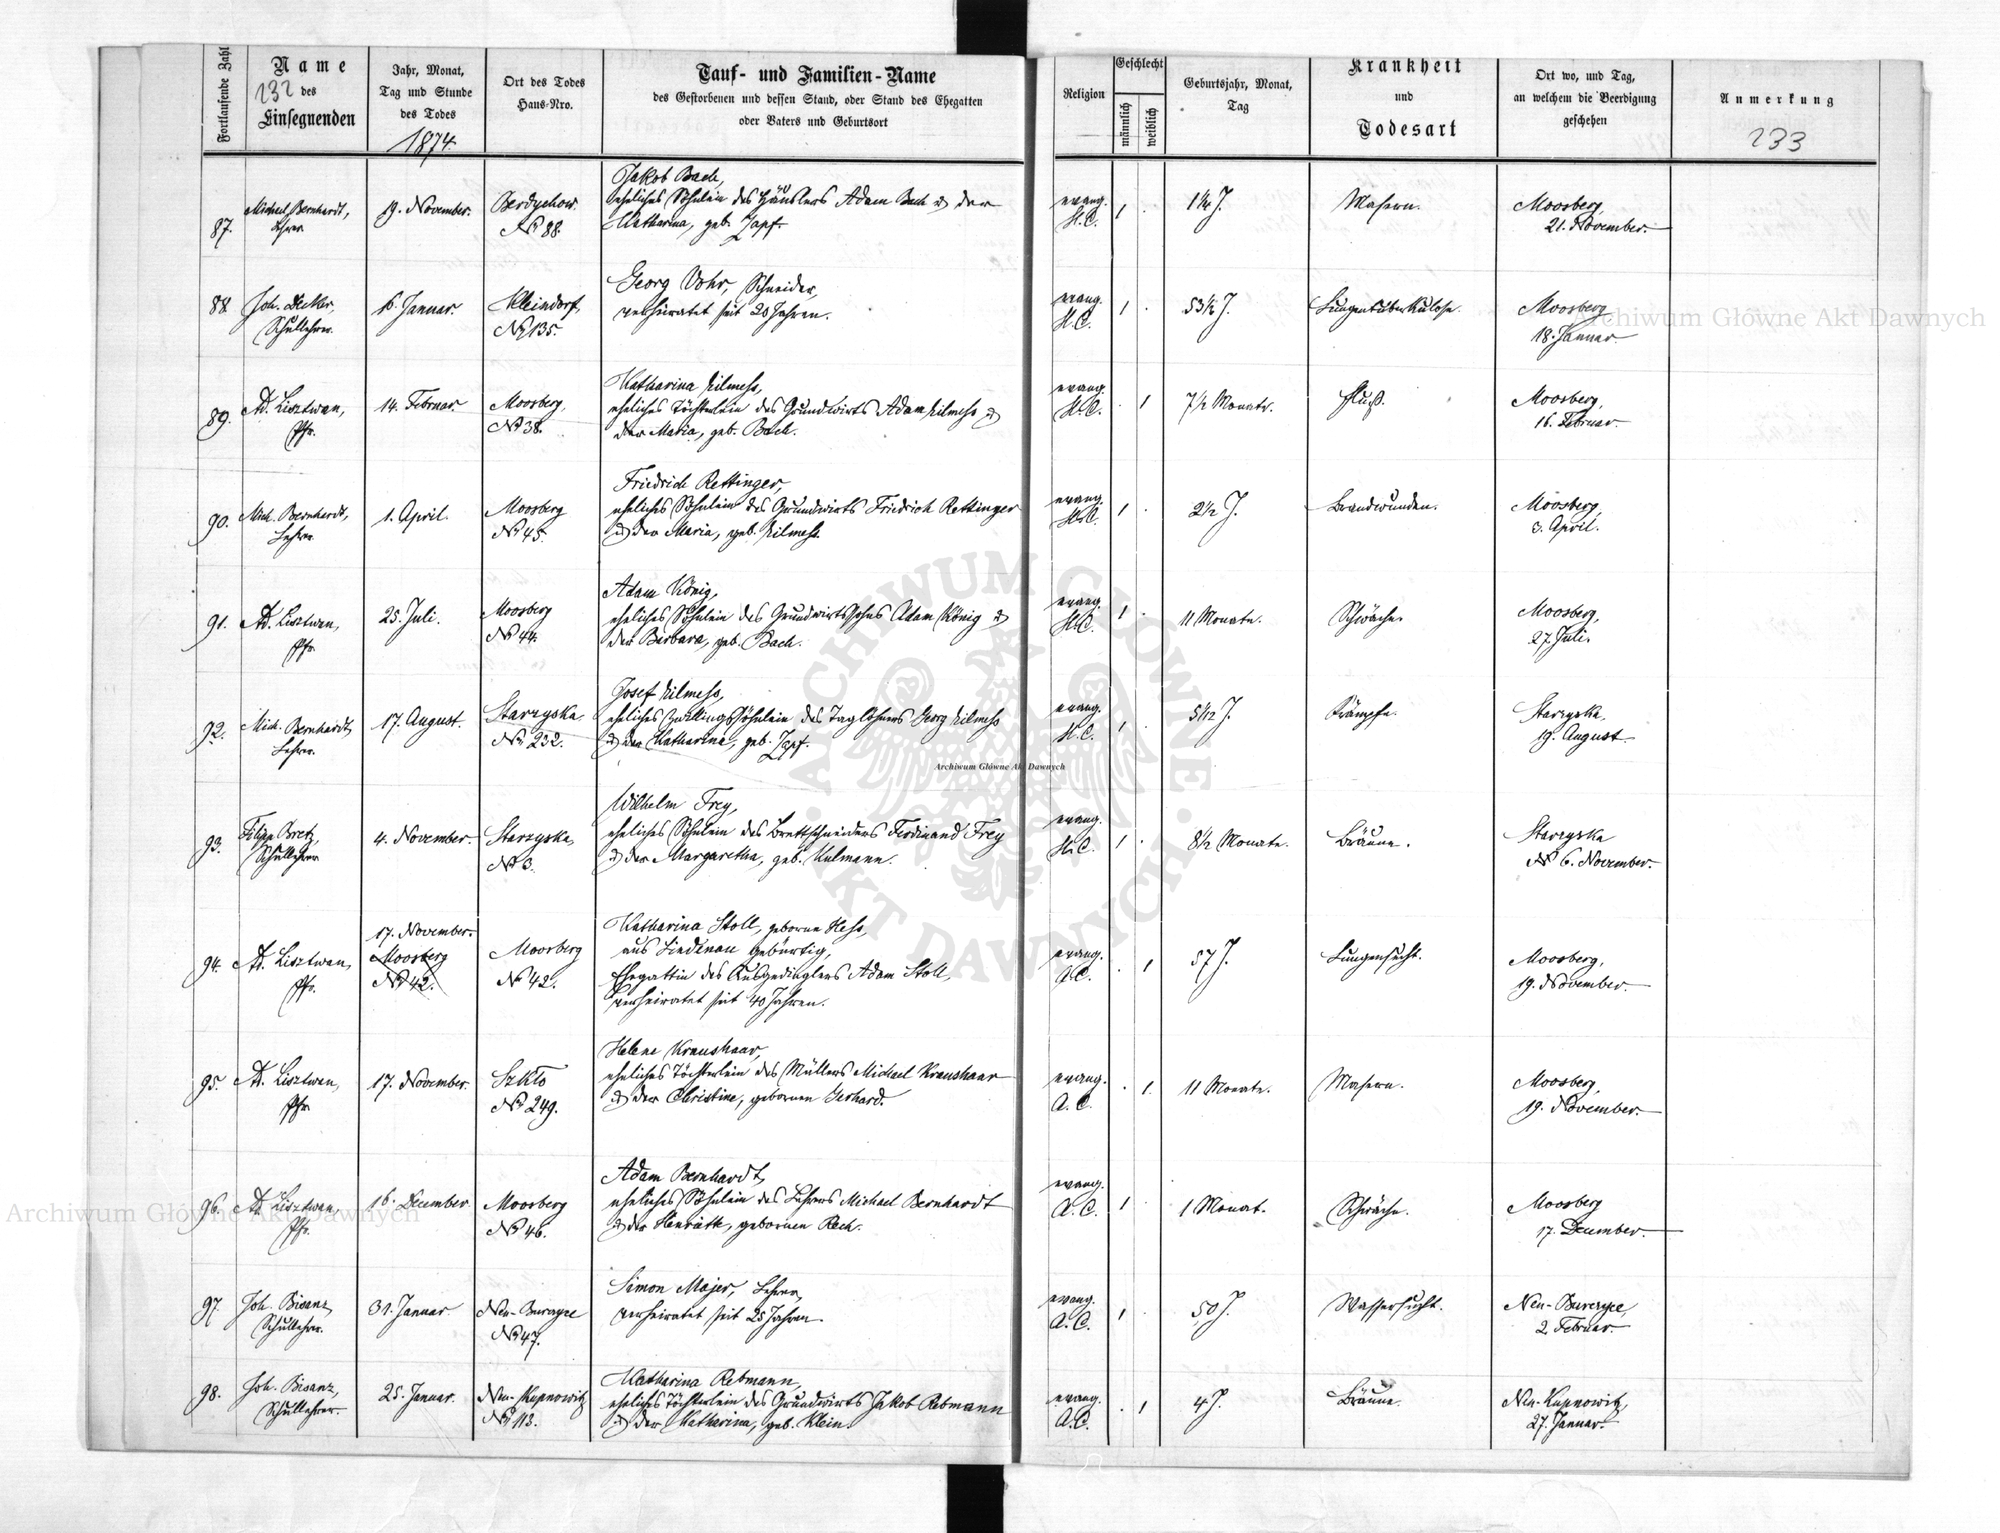 Fortlaufende Zahl
Name
des
Einsegnenden
232
Jahr, Monat,
Tag und Stunde
des Todes
1874.
Ort des Todes
Haus-Nro.
Tauf- und Familien-Name
des Gestorbenen und dessen Stand, oder Stand des Ehegatten
oder Vaters und Geburtsort
Religion
Geschlecht
männlich
weiblich
Geburtsjahr, Monat,
Tag
Krankheit
und
Todesart
Ort wo, und Tag,
an welchem die Beerdigung
geschehen
Anmerkung
233
87.
Michael Bernhardt,
Lehrer
19. November.
Berdychow.
No 88.
Jakob Bach,
eheliches Söhnlein des Häuslers Adam Bach & der
Katharina, geb. Zapf.
evang.
H. C.
1
1¼ J.
Masern.
Moosberg,
21. November.
88
Joh. Decker,
Schullehrer.
6. Januar.
Kleindorf,
No 135.
Georg Vohr, Schneider,
verheiratet seit 20 Jahren.
evang.
H. C.
1
53½ J.
Lungentuberkulose.
Moosberg
18. Januar.
89.
Ad. Lisztwan,
Pfr.
14. Februar.
Moosberg,
No 38.
Katharina Hilmess,
eheliches Töchterlein des Grundwirts Adam Hilmess &
der Maria, geb. Bach.
evang.
H. C.
1
7½ Monate.
Fluß.
Moosberg,
16. Februar.
90.
Mich. Bernhardt,
Lehrer.
1. April.
Moosberg
No 45.
Friedrich Rettinger,
eheliches Söhnlein des Grundwirts Friedrich Rettinger
& der Maria, geb. Hilmess.
evang.
H. C.
1
2½ J.
Brandwunden.
Moosberg,
3. April.
91.
Ad. Lisztwan,
Pfr.
25. Juli.
Moosberg
No 44.
Adam König,
eheliches Söhnlein des Grundwirtssohns Adam König &
der Barbara, geb. Bach.
evang.
H. C.
1
11 Monate.
Schwäche.
Moosberg,
27. Juli.
92.
Mich. Bernhardt,
Lehrer.
17. August.
Starzyska
No 232.
Josef Hilmess,
eheliches Zwillingssöhnlein des Taglöhners Georg Hilmess
& der Katharina, geb. Zapf.
evang.
H. C.
1
5/12 J.
Krämpfe.
Starzyska,
19. August.
93.
Filipp Bretz,
Schullehrer
4. November.
Starzyska,
No 3.
Wilhelm Frey,
eheliches Söhnlein des Brettschneiders Ferdinand Frey
& der Margaretha, geb. Kulmann.
evang.
H. C.
1
8½ Monate.
Bräune.
Starzyska
No 6. November.
94.
Ad. Lisztwan,
Pfr.
17. November.
Moosberg
No 42.
Moosberg
No 42.
Katharina Stoll, geborne Hess,
aus Lindenau gebürtig,
Ehegattin des Ausgedinglers Adam Stoll,
verheiratet seit 40 Jahren.
evang.
A. C.
1
57 J.
Lungensucht.
Moosberg,
19. November.
95.
Ad. Lisztwan,
Pfr.
17. November.
Szkło
No 249.
Helene Kraushaar,
eheliches Töchterlein des Müllers Michael Kraushaar
& der Christine, gebornen Gerhard.
evang.
A. C.
1.
11 Monate.
Masern.
Moosberg,
19. November.
96.
Ad. Lisztwan,
Pfr.
16. December
Moosberg
No 46.
Adam Bernhardt,
eheliches Söhnlein des Lehrers Michael Bernhardt
& der Henriette, gebornen Rech.
evang.
A. C.
1
1 Monat.
Schwäche.
Moosberg
17. December.
97.
Joh. Bisanz,
Schullehrer.
31. Januar.
Neu-Burczyce
No 47.
Simon Majer, Lehrer,
verheiratet seit 25 Jahren.
evang.
A. C.
1
50 J.
Wassersucht.
Neu-Burczyce,
2. Februar.
98.
Joh. Bisanz,
Schullehrer.
25. Januar.
Neu-Kupnowitz
No 113.
Katharina Rebmann,
eheliches Töchterlein des Grundwirts Jakob Rebmann
& der Katharina, geb. Klein.
evang.
A. C.
1
4 J.
Bräune.
Neu-Kupnowitz,
27. Januar.
Archiwum Główne Akt Dawnych
Archiwum Główne Akt Dawnych
Archiwum Główne Akt Dawnych
ARCHIWUM GŁÓWNE
AKT DAWNYCH